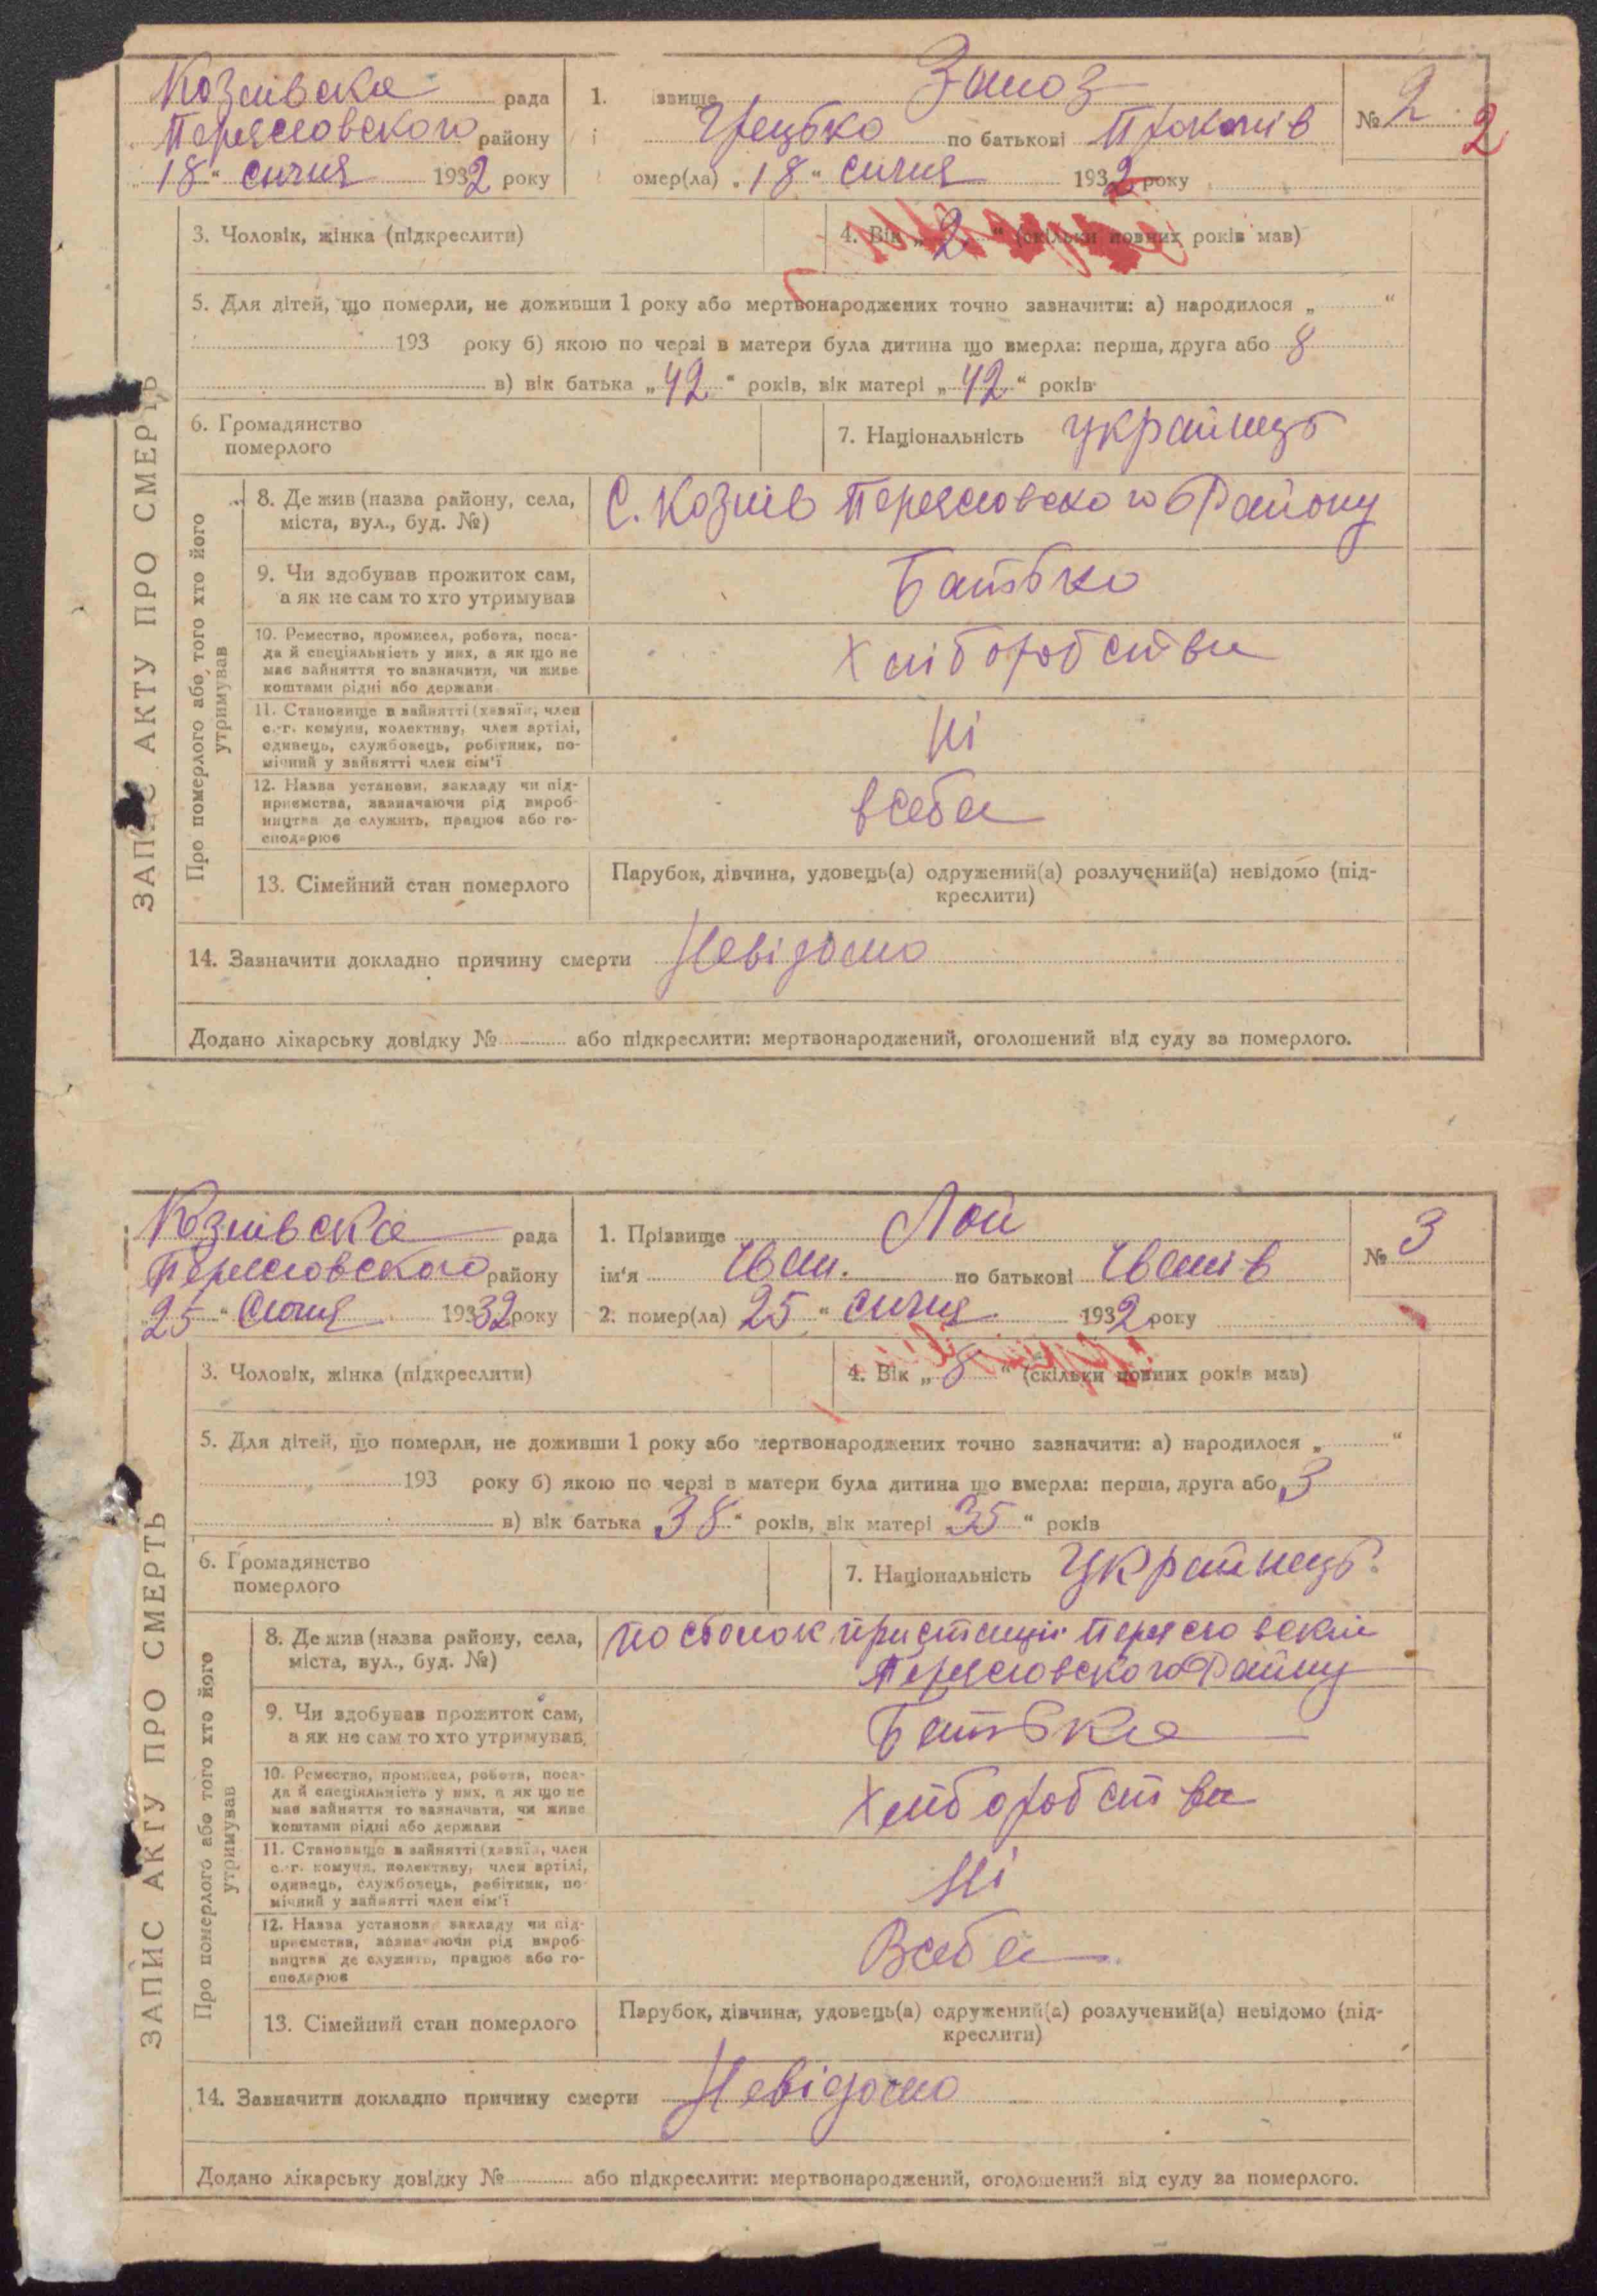 Козлівска рада
Переясловского району
„18“ січня 1932 року
1. ізвище Замоз
і Грецько по батькові Прокопів
омер(ла) „18“ січня 1932 року
№ 2
2
3. Чоловік, жінка (підкреслити)
4. Вік „2“ (скільки повних років мав)
5. Для дітей, що померли, не доживши 1 року або мертвонароджених точно зазначити: а) народилося „ “
193 року б) якою по черзі в матери була дитина що вмерла: перша, друга або 8
в) вік батька „42“ років, вік матері „42“ років
6. Громадянство
померлого
7. Національність українець
ЗАПИС АКТУ ПРО СМЕРТЬ
Про померлого або того хто його
утримував
8. Де жив (назва району, села,
міста, вул., буд. №)
С. Козлів Переясловского Району
9. Чи здобував прожиток сам,
а як не сам то хто утримував
Батько
10. Ремество, промисел, робота, поса-
да й спеціяльність у них, а як що не
має зайняття то зазначити, чи живе
коштами рідні або держави
Хліборобства
11. Становище в зайнятті (хазяїн, член
с.-г. комуни, колективу, член артілі,
одинець, службовець, робітник, по-
мічний у зайнятті член сім'ї
Ні
12. Назва установи, закладу чи під-
приємства, зазначаючи рід вироб-
ництва де служить, працює або го-
сподарює
всеба
13. Сімейний стан померлого
Парубок, дівчина, удовець(а) одружений(а) розлучений(а) невідомо (під-
креслити)
14. Зазначити докладно причину смерти Невідомо
Додано лікарську довідку № або підкреслити: мертвонароджений, оголошений від суду за померлого.
Козлівска рада
Переясловского району
„25“ Січня 19332 року
1. Прізвище Лой
ім'я Іван. по батькові Іванів
2. помер(ла) 25 „ січня 1932 року
№ 3
3. Чоловік, жінка (підкреслити)
4. Вік „8“ (скільки повних років мав)
5. Для дітей, що померли, не доживши 1 року або мертвонароджених точно зазначити: а) народилося „ “
193 року б) якою по черзі в матери була дитина що вмерла: перша, друга або 3
в) вік батька 38“ років, вік матері 35“ років
6. Громадянство
померлого
7. Національність Українець.
ЗАПИС АКТУ ПРО СМЕРТЬ
Про померлого або того хто його
утримував
8. Де жив (назва району, села,
міста, вул., буд. №)
посьолок пристанці Переясловскій
Переясловского Району
9. Чи здобував прожиток сам,
а як не сам то хто утримував
Батька
10. Ремество, промисел, робота, поса-
да й спеціяльність у них, а як що не
має зайняття то зазначити, чи живе
коштами рідні або держави
Хліборобства
11. Становище в зайнятті (хазяїн, член
с.-г. комуни, колективу, член артілі,
одинець, службовець, робітник, по-
мічний у зайнятті член сім'ї
Ні
12. Назва установи закладу чи під-
приємства, зазначаючи рід вироб-
ництва де служить, працює або го-
сподарює
Всеба
13. Сімейний стан померлого
Парубок, дівчина, удовець(а) одружений(а) розлучений(а) невідомо (під-
креслити)
14. Зазначити докладно причину смерти Невідомо
Додано лікарську довідку № або підкреслити: мертвонароджений, оголошений від суду за померлого.